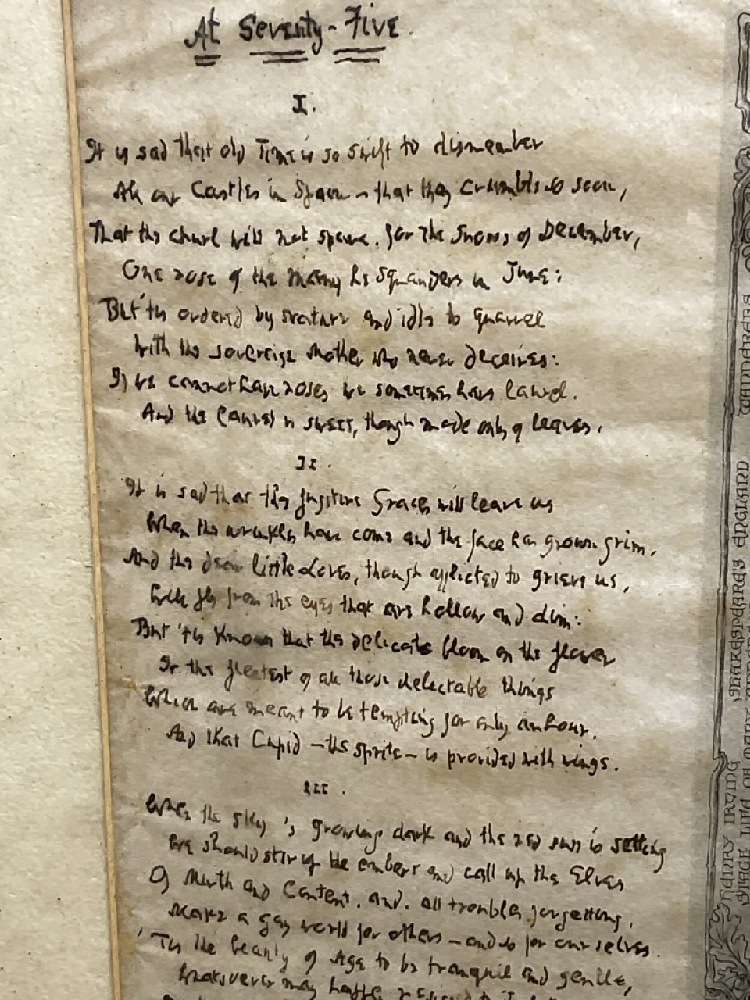 At Seventy-Five.
I.
It is sad that old Time is so swift to dismember
All our Castles in Spain - that they crumble so soon,
That the churl will not spare, for the Snows of December,
One rose of the many he squanders in June:
But 'tis ordered by nature and idle to quarrel
With the sovereign mother who never deceives:
If we cannot have roses we sometimes have laurel.
And the laurel is sweet, though made only of leaves.
II.
It is sad that the fugitive Graces will leave us
When the wrinkles have come and the face has grown grim,
And the dear little Loves, though afflicted to grieve us,
Will fly from the eyes that are hollow and dim:
But 'tis known that the delicate bloom on the flower
Is the fleetest of all those delectable things
Which are meant to be tempting for only an hour,
And that Cupid - the sprite - is provided with wings.
III.
When the sky 's growing dark and the red sun is setting
We should stir up the embers and call up the Elves
Of Mirth and Content, and, all troubles forgetting,
Make a gay world for others - and so for ourselves.
'Tis the beauty of Age to be tranquil and gentle,
Whatsoever may happen
SHAKESPEARE'S ENGLAND
WANDERERS
HENRY IRVING